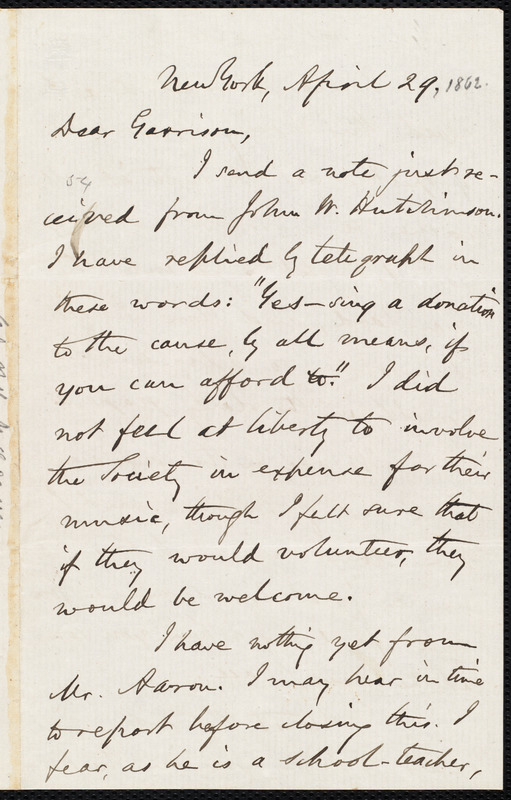 New York, April 29, 1862.
Dear Garrison,
I send a note just re-
54
ceived from John W. Hutchinson.
I have replied by telegraph in
these words: "Yes—sing a donation
to the cause, by all means, if
you can afford to." I did
not feel at liberty to involve
the Society in expense for their
music, though I felt sure that
if they would volunteer, they
would be welcome.
I have nothing yet from
Mr. Aaron. I may hear in time
to report before closing this. I
fear, as he is a school-teacher,